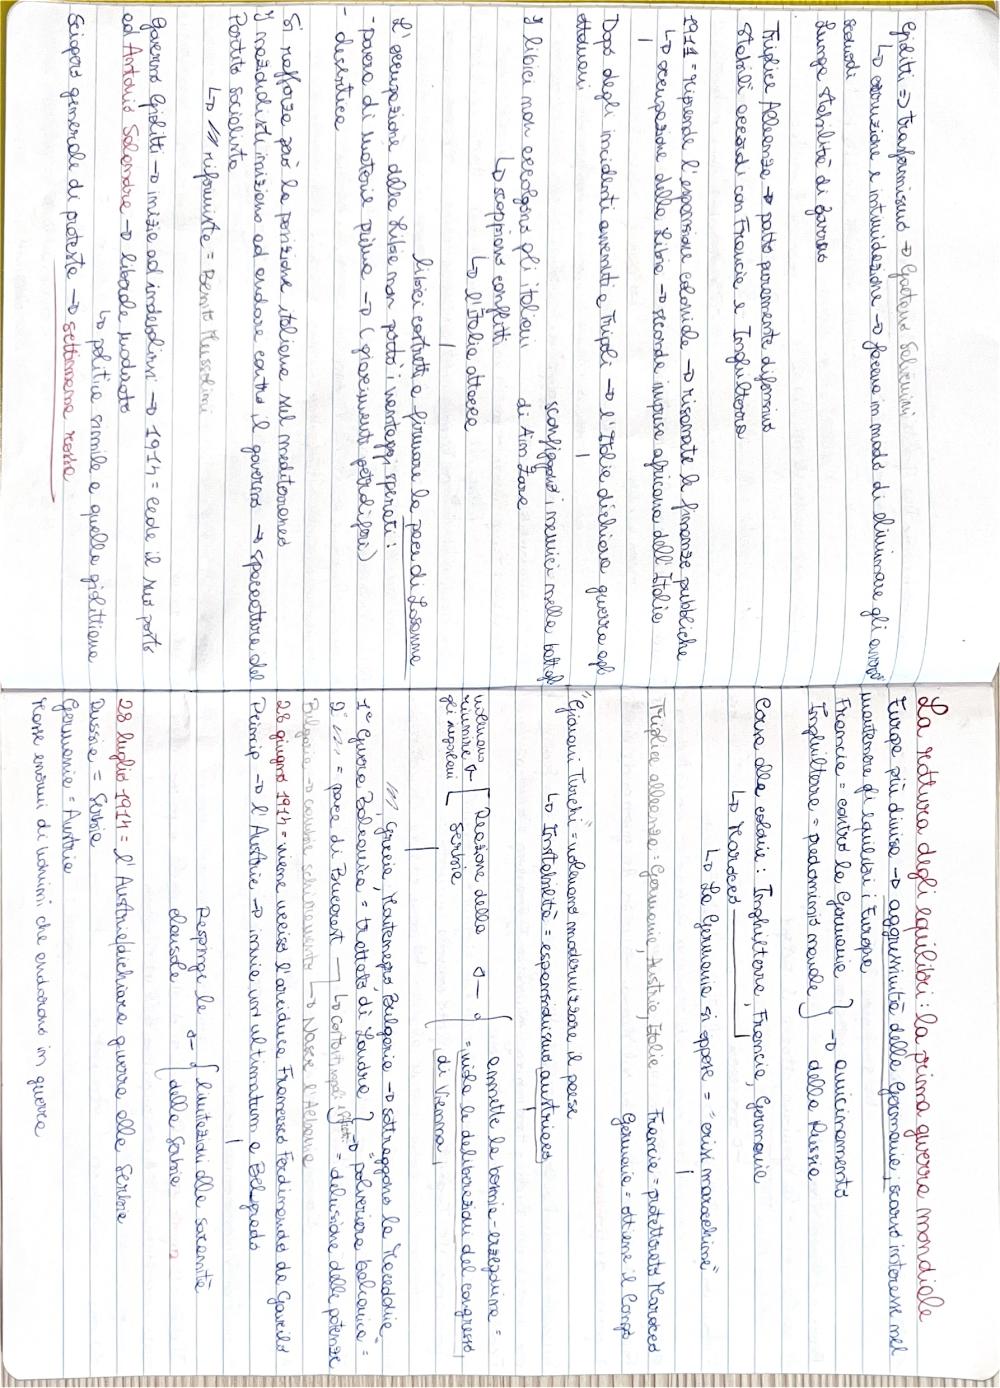 Giolitti => trasformismo → Gaetano Salvemini
↳ corruzione e intimidazione → faceva in modo di eliminare gli avversari
scomodi
Lunga stabilità di governo
Triplice Alleanza → patto puramente difensivo
Stabilì accordi con Francia e Inghilterra
1911 = riprende l'espansione coloniale → risanate le finanze pubbliche
↳ occupazione della Libia → seconda impresa africana dell'Italia
Dopo degli incidenti avvenuti a Tripoli → l'Italia dichiara guerra agli
ottomani
I libici non accolgono gli italiani
↳ scoppiano conflitti
↳ l'Italia attacca
sconfiggono i nemici nella battaglia
di Ain Zara
libici costretti a firmare la pace di Losanna
L'occupazione della Libia non portò i vantaggi sperati:
- povera di materie prime → (giacimenti petroliferi)
- desertica
Si rafforza però la posizione italiana nel mediterraneo
I nazionalisti iniziano ad andare contro il governo → spaccatura del
Partito socialista
↳ /// riformista = Benito Mussolini
Governo Giolitti → inizia ad indebolirsi → 1914 = cede il suo posto
ad Antonio Salandra → liberale moderato
↳ politica simile a quella giolittiana
Sciopero generale di protesta → settimana rossa
La rottura degli equilibri: la prima guerra mondiale
Europa più divisa → aggressività della Germania, scarso interesse nel
mantenere gli equilibri in Europa
Francia = contro la Germania } → avvicinamento
Inghilterra = predominio navale } della Russia
Corsa alle colonie: Inghilterra, Francia, Germania
↳ Marocco
↳ La Germania si oppone = "crisi marocchine"
Triplice alleanza: Germania, Austria, Italia
Francia = protettorato Marocco
Germania = ottiene il Congo
"Giovani Turchi" = volevano modernizzare il paese
↳ Instabilità = espansionismo austriaco
annette la bosnia-erzegovina =
= viola le deliberazioni del congresso
di Vienna
Reazione della
Serbia
volevano
riunire
gli jugoslavi
///, Grecia, Montenegro, Bulgaria → sottraggono la Macedonia
1ª Guerra Balcanica = trattato di Londra } → "polveriera balcanica" =
2ª /// = pace di Bucarest = delusione delle potenze
Bulgaria → cambia schieramento ↳ Nasce l'Albania
28 giugno 1914 = viene ucciso l'arciduca Francesco Ferdinando da Gavrilo
Princip → l'Austria → invia un ultimatum a Belgrado
{ limitazioni alla sovranità
della Serbia
Respinge le
clausole
28 luglio 1914 = l'Austria dichiara guerra alla Serbia
Russia = Serbia
Germania = Austria
Masse enormi di uomini che andarono in guerra